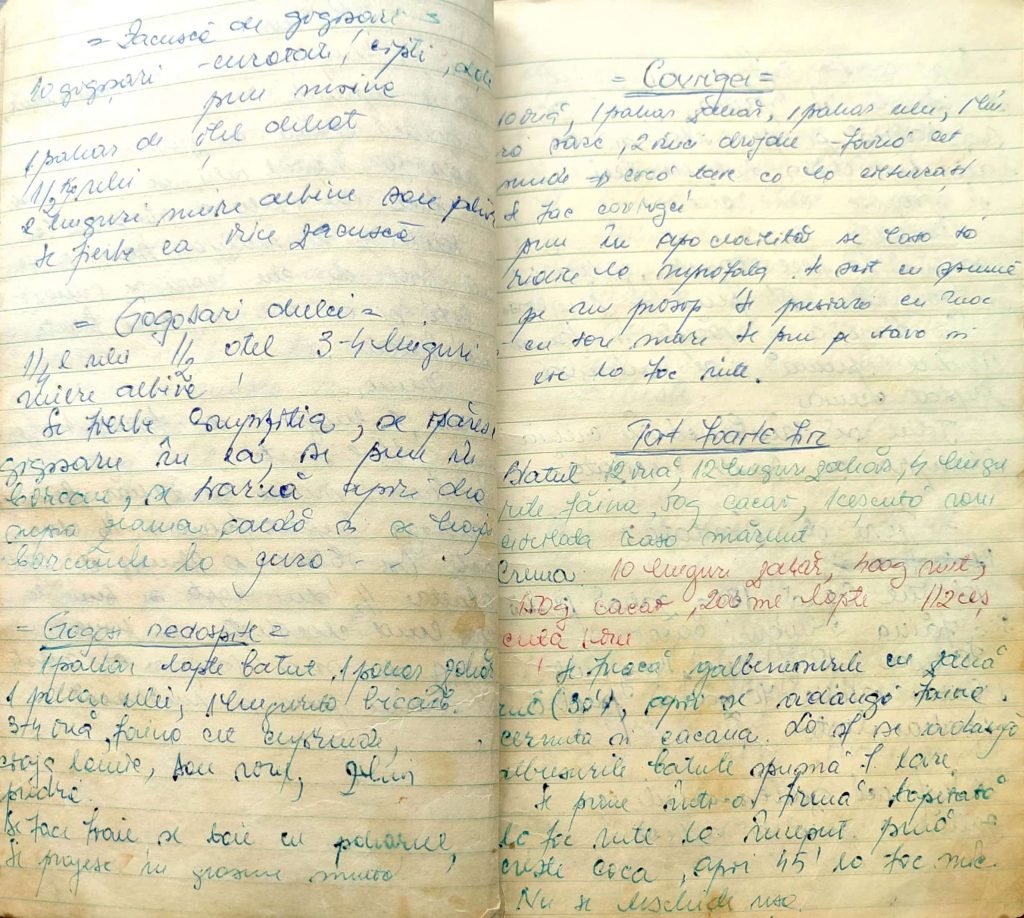 = Zacuscă de gogoșari =
10 gogoșari - curățati, copți, dați
prin mașina
1 pahar de oțet diluat
1 1/2 kg ulei
2 linguri miere albine sau
Se fierbe ca orice zacuscă
= Gogoșari dulci =
1/4 l ulei 1/2 oțet 3-4 linguri
miere albine
Se fierbe compoziția, se opăresc
gogoșarii în ea, se pun în
borcane, se toarnă apoi
zeama caldă și se leagă
borcanele la gură - - -
= Gogoși nedospite =
1 pahar lapte bătut, 1 pahar zahăr
1 pahar ulei, 1 linguriță bicarb.
3-4 ouă, făină cît cuprinde,
coajă lămîie, sau rom, zahăr
pudră.
Se face foaie se taie cu paharul,
Se prăjesc în grăsime multă
= Covrigei =
10 ouă, 1 pahar zahăr, 1 pahar ulei, 1 lingu
ră sare, 2 nuci drojdie - făină cît
cocă tare ca la
Se fac covrigei
puși în apă clocotită se lasă să
ridice la suprafață. Se scot cu spumiera
pe un prosop. Se presară cu mac
cu sare mare se pun pe tava și
coc la foc iute.
Tort foarte fin
Blatul 12 ouă, 12 linguri zahăr, 4 lingu
rite făină, 50g cacao, 1 cescuță rom
ciocolată rasă mărunt
Crema 10 linguri zahăr, 400g unt,
150g cacao, 200 ml lapte 1/2 ceș
cuță rom
Se freacă gălbenușurile cu zahă
rul (30'), apoi se adaugă făina
cernută și cacaoa. La sf se adaugă
albușurile bătute spumă f tare
Se pune într-o formă tapetată
la foc iute la început până
crește coca, apoi 45' la foc mic.
Nu se deschide ușa.